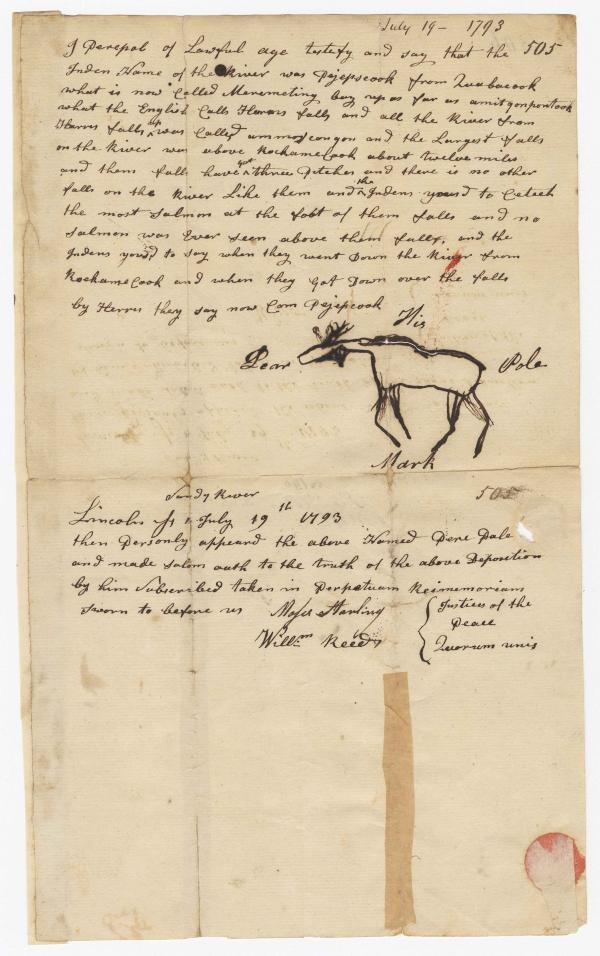 July 19 - 1793
I Perepole of Lawful age testify and say that the 505
Inden Name of the River was Pejepscook from Quabacook
what is now Called Meremeting bay up as far as amitgonpontook
what the English Calls Harrus falls and all the River from
Harrus falls up was Called ammoscongon and the Largest falls
on the River was above Rockamecook about twelve miles
and them falls have got three Pitches and there is no other
falls on the River Like them and the Indens yousd to Cetech
the most Salmon at the foot of them falls and no
Salmon was Ever seen above them falls, and the
Indens yousd to say when they went Down the River from
Rockamecook and when they Got Down over the falls
by Herrus they say now Com Pejepscook
His
Pear Pole
Mark
Sandy River 505
Lincoln Ss July 19th 1793
then Personly appeard the above Named Pere Pale
and made Solom oath to the truth of the above Deposition
by him Subscribed taken in Perpetuam Reimemoriam
Sworn to before us
Willm Reeds
Justices of the
Peace
Quorum unis